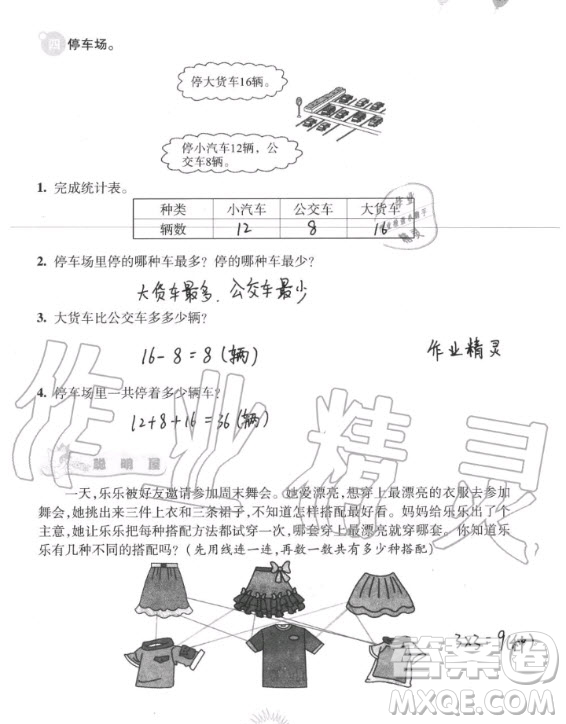 四 停车场。
停大货车16辆。
停小汽车12辆，公
交车8辆。
1. 完成统计表。
种类 小汽车 公交车 大货车
辆数 12 8 16
2. 停车场里停的哪种车最多？停的哪种车最少？
大货车最多、公交车最少
3. 大货车比公交车多多少辆？
16-8=8(辆)
作业精灵
4. 停车场里一共停着多少辆车？
12+8+16=36(辆)
作业精灵
聪明屋
一天，乐乐被好友邀请参加周末舞会。她爱漂亮，想穿上最漂亮的衣服去参加
舞会，她挑出来三件上衣和三条裙子，不知道怎样搭配最好看。妈妈给乐乐出了个
主意，她让乐乐把每种搭配方法都试穿一次，哪套穿上最漂亮就穿哪套。你知道乐
乐有几种不同的搭配吗？(先用线连一连，再数一数共有多少种搭配)
3×3=9(种)
答案圈
MXQE.COM